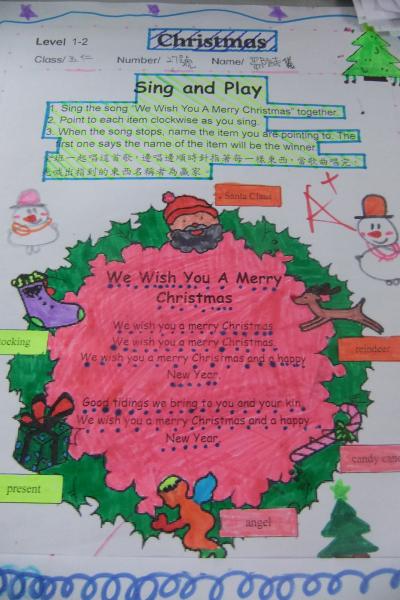 Level 1-2
Christmas
Class/五仁 Number/27號 Name/
Sing and Play
1. Sing the song "We Wish You A Merry Christmas" together.
2. Point to each item clockwise as you sing.
3. When the song stops, name the item you are pointing to. The
first one says the name of the item will be the winner
班一起唱這首歌，邊唱邊順時針指著每一樣東西，當歌曲唱完，
喊出指到的東西名稱者為贏家
Santa Claus
A+
We Wish You A Merry
Christmas
We wish you a merry Christmas
We wish you a merry Christmas
We wish you a merry Christmas and a happy
New Year.
Good tidings we bring to you and your kin,
We wish you a merry Christmas and a happy
New Year.
tocking
reindeer
present
candy cane
angel